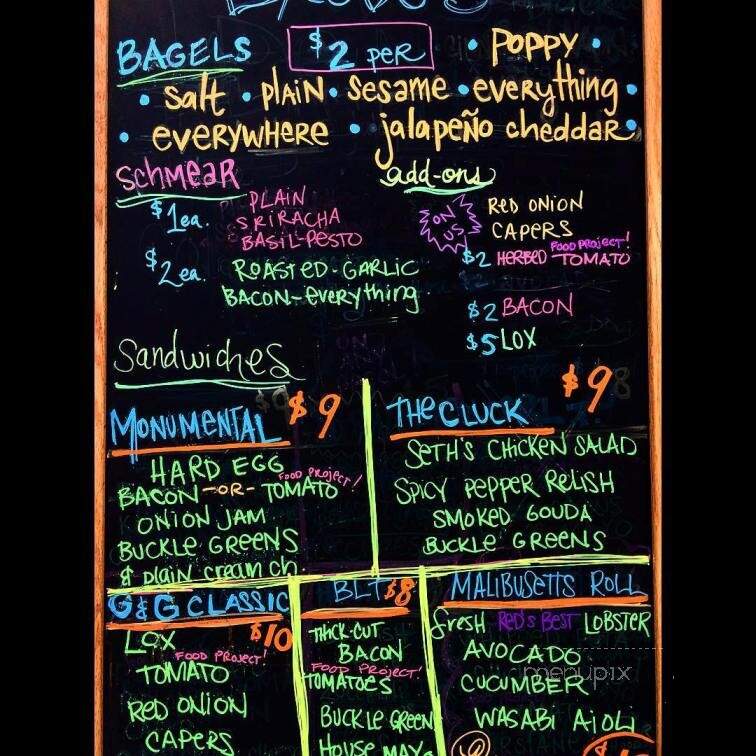 BAGELS $2 PER • POPPY •
• salt • PLAIN • sesame • everything •
• EVERYWHERE • jalapeño cheddar •
SCHMEAR
$1ea. PLAIN
SRIRACHA
BASIL-PESTO
$2ea. ROASTED-GARLIC
BACON-everything
add-ons
ON US RED ONION
CAPERS
FOOD PROJECT!
$2 HERBED TOMATO
$2 BACON
$5 LOX
Sandwiches
MONUMENTAL $9
HARD EGG
FOOD PROJECT!
BACON -OR- TOMATO
ONION JAM
BUCKLE GREENS
& plain cream ch.
THE CLUCK $9
SETH'S CHICKEN SALAD
SPICY PEPPER RELISH
SMOKED GOUDA
BUCKLE GREENS
G&G CLASSIC
$10
LOX
FOOD PROJECT!
TOMATO
RED ONION
CAPERS
BLT $8
THICK-CUT
BACON
FOOD PROJECT!
TOMATOES
BUCKLE GREEN
HOUSE MAYO
MALIBUSETTS ROLL
fresh RED'S BEST LOBSTER
AVOCADO
CUCUMBER
WASABI AIOLI
menupix